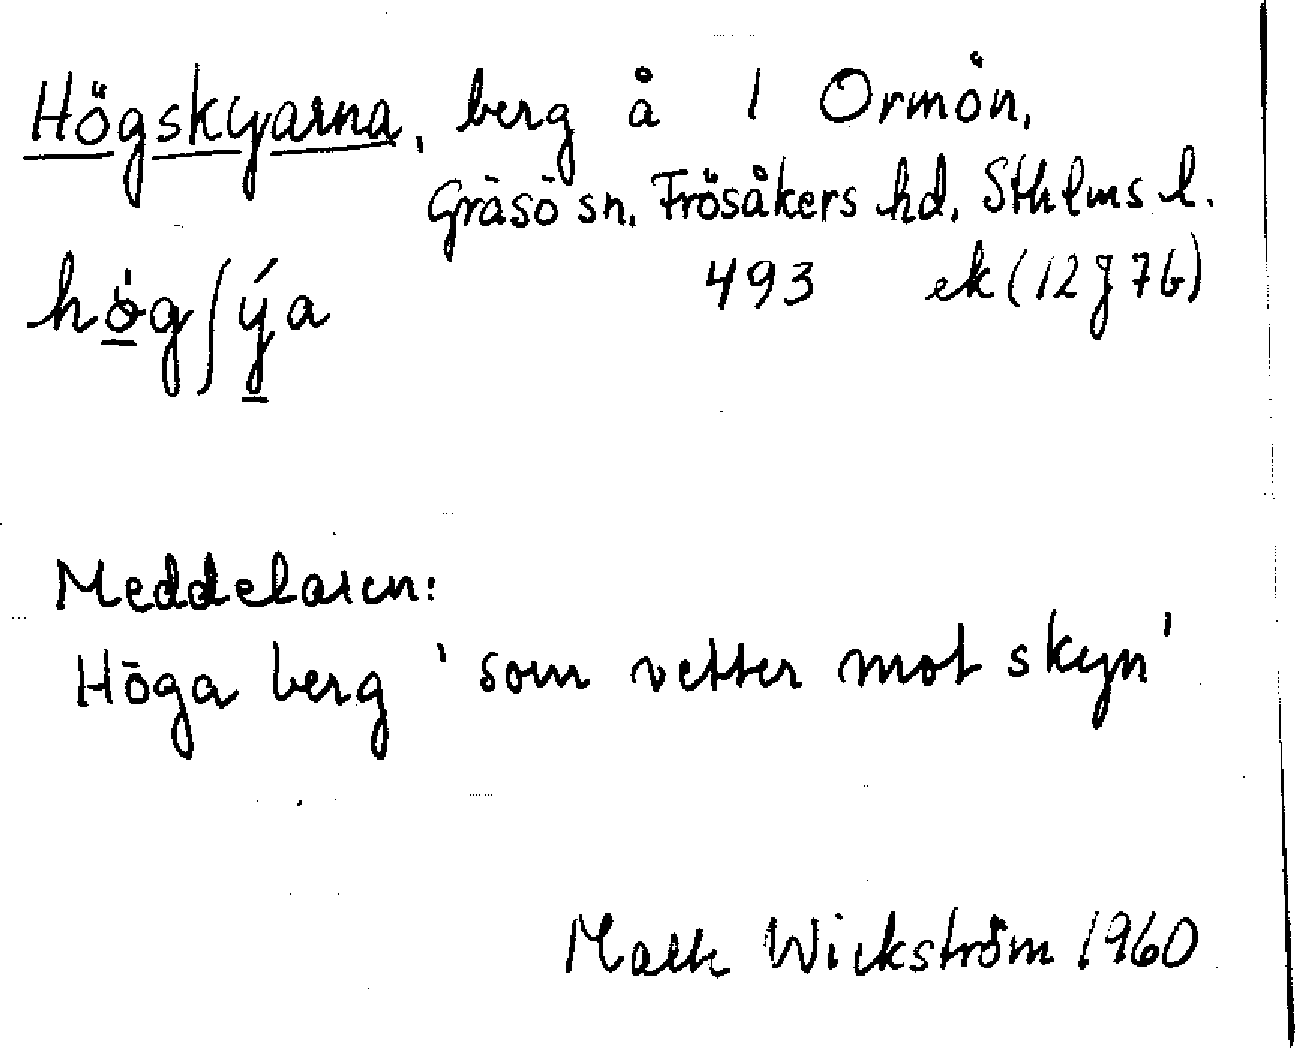 Högskyarna, berg å 1 Ormön,
Gräsö sn. Frösåkers hd. Sthlms l.
493 ek (12 J 7b)
hö̲gʃý̲a
Meddelaren:
Höga berg 'som vetter mot skyn'
Wickström 1960